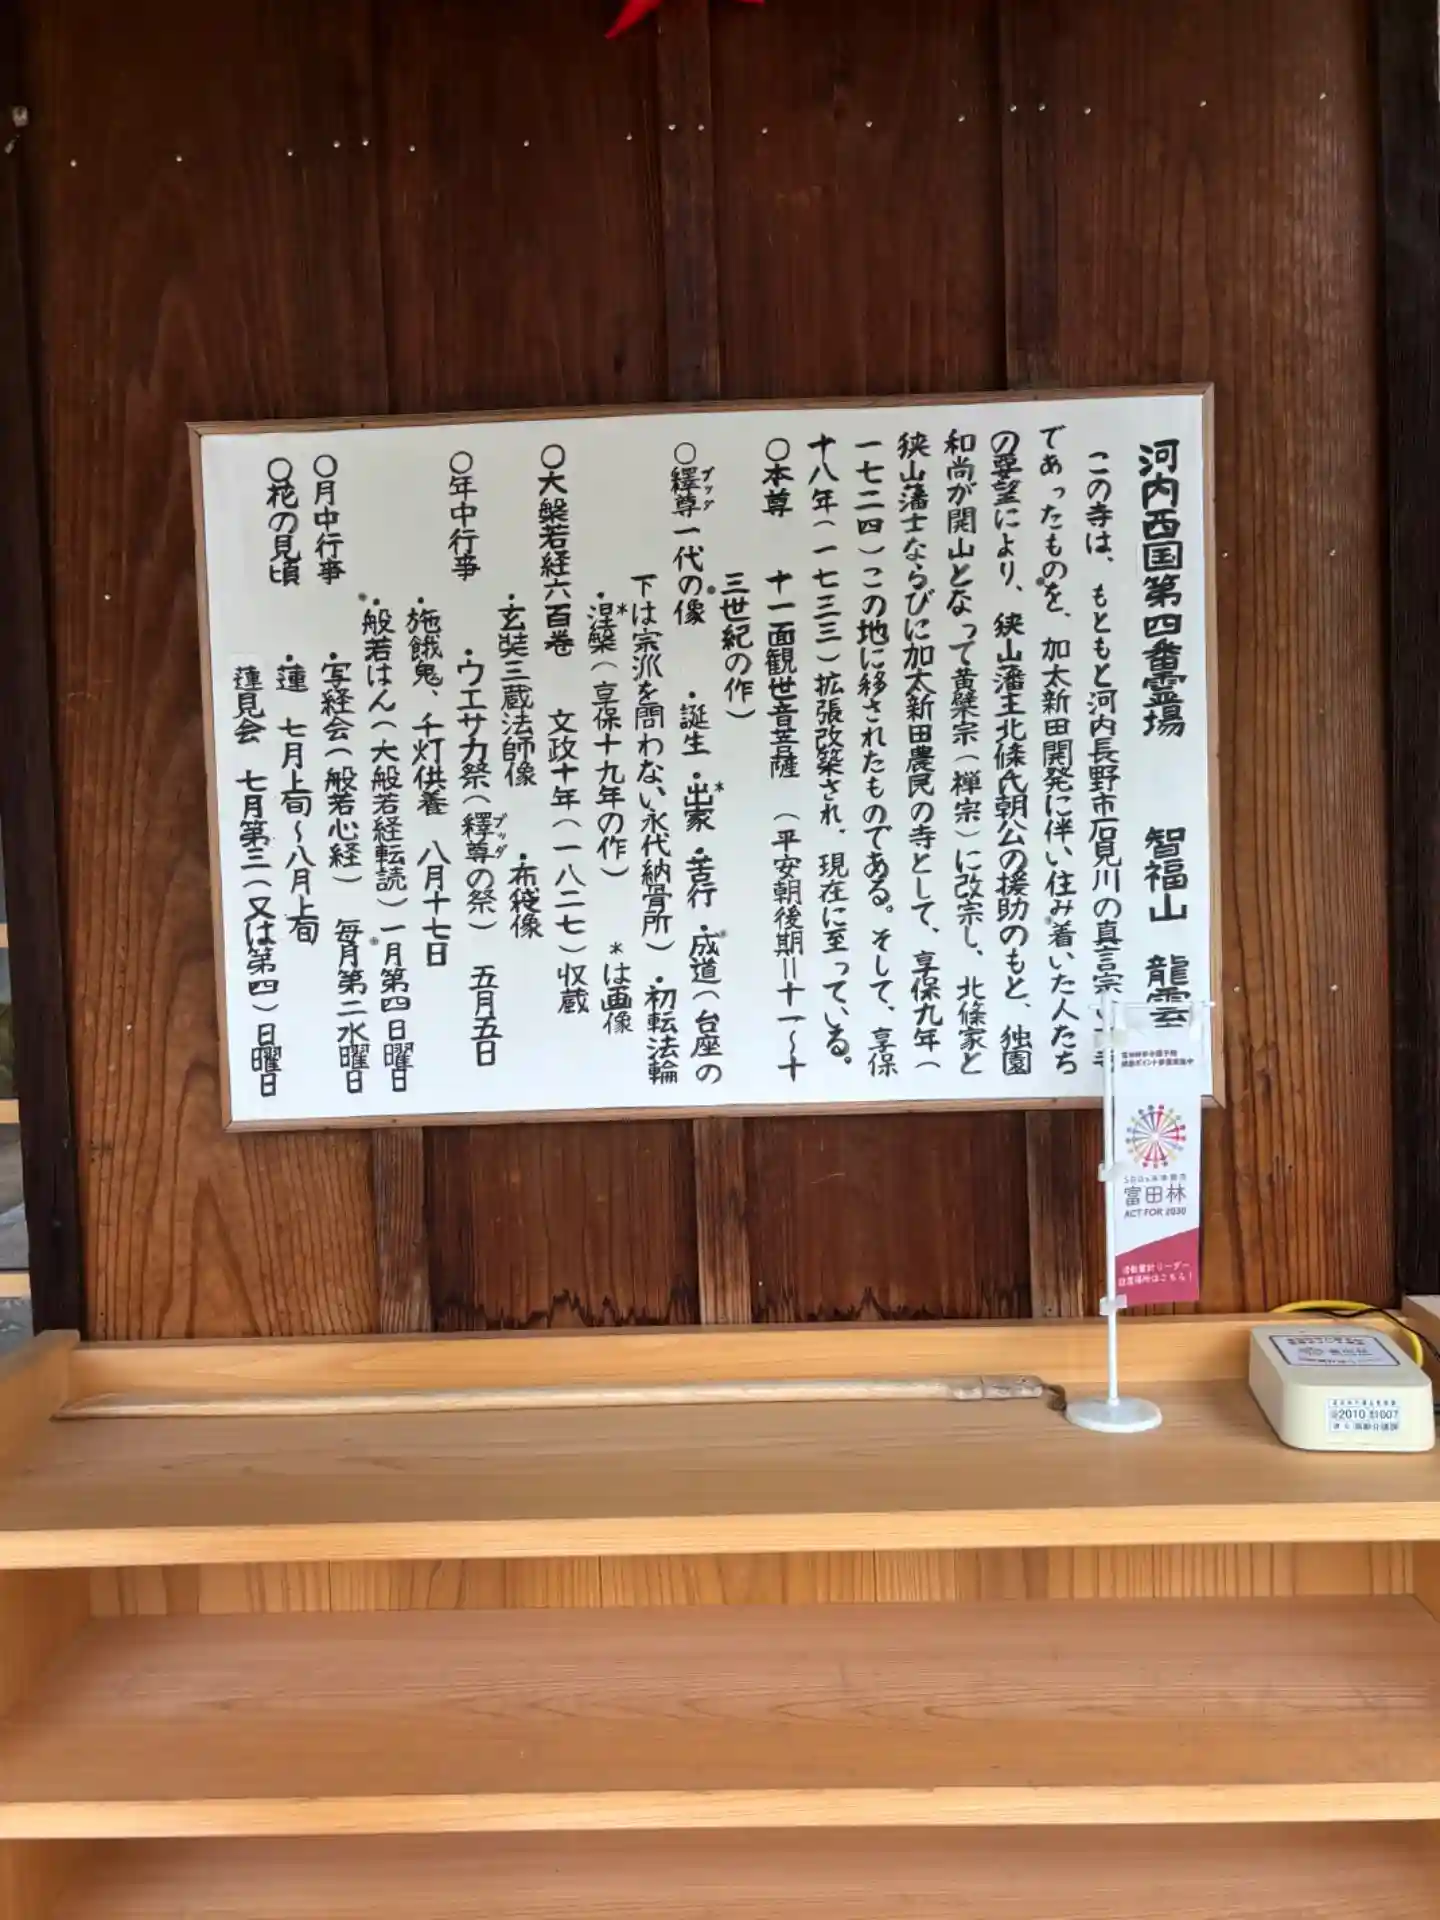 河内西国第四番霊場　智福山　龍雲
この寺は、もともと河内長野市石見川の真言宗
であったものを、加太新田開発に伴い住み着いた人たち
の要望により、狭山藩主北條氏朝公の援助のもと、独園
和尚が開山となって黄檗宗（禅宗）に改宗し、北條家と
狭山藩士ならびに加太新田農民の寺として、享保九年（
一七二四）この地に移されたものである。そして、享保
十八年（一七三三）拡張改築され、現在に至っている。
○本尊　十一面観世音菩薩　（平安朝後期＝十一〜十
三世紀の作）
○釋尊一代の像　・誕生・出家・苦行・成道（台座の
ブッダ
下は宗派を問わない永代納骨所）・初転法輪
・涅槃（享保十九年の作）　＊は画像
○大槃若経六百巻　文政十年（一八二七）収蔵
・玄奘三蔵法師像　・布袋像
○年中行事　・ウエサカ祭（釋尊の祭）　五月五日
ブッダ
・施餓鬼、千灯供養　八月十七日
・般若はん（大般若経転読）一月第四日曜日
○月中行事　・写経会（般若心経）　毎月第二水曜日
○花の見頃　・蓮　七月上旬〜八月上旬
蓮見会　七月第三（又は第四）日曜日
富田林
ACT FOR 2030
設置場所はこちら！
2010 007